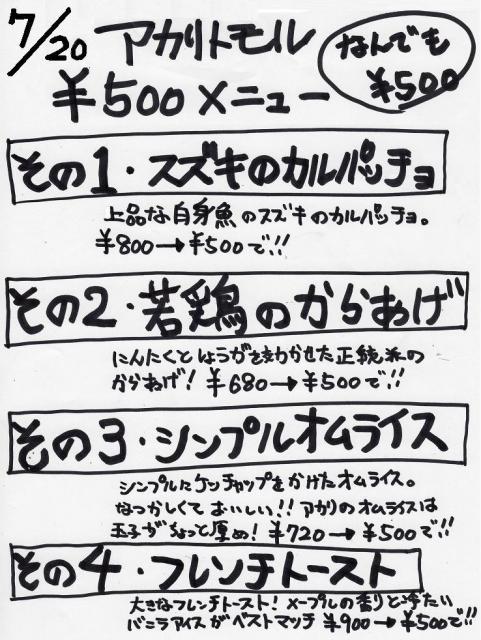 7/20 アカリトモル
なんでも
¥500
¥500メニュー
その1・スズキのカルパッチョ
上品な白身魚のスズキのカルパッチョ。
¥800→¥500で!!
その2・若鶏のからあげ
にんにくとしょうがを効かせた正統派の
からあげ! ¥680→¥500で!!
その3・シンプルオムライス
シンプルにケチャップをかけたオムライス。
なつかしくておいしい!! アカリのオムライスは
玉子がちょっと厚め! ¥720→¥500で!!
その4・フレンチトースト
大きなフレンチトースト! メープルの香りと冷たい
バニラアイスがベストマッチ ¥900→¥500で!!